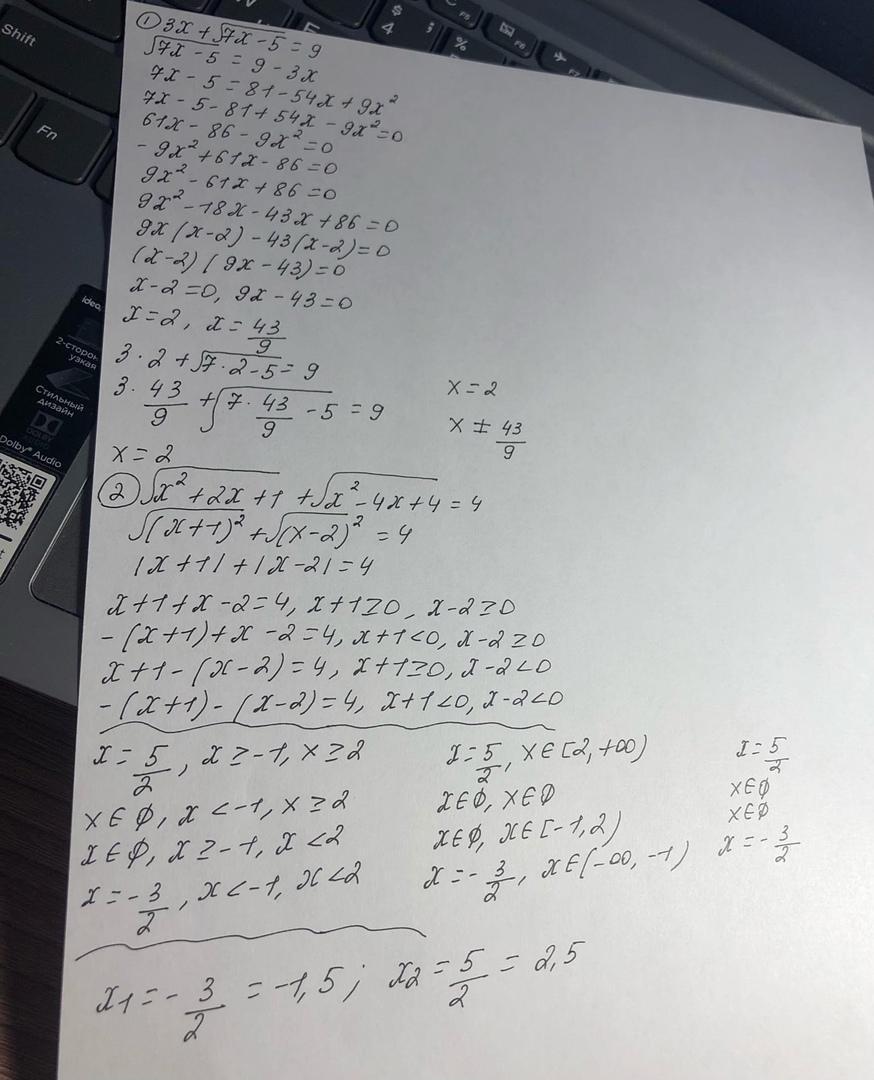 Shift
Fn
$
4
;
%
F5
F6
F7
idea
2-сторон
узкая
Стильный
дизайн
DOLBY
Dolby® Audio
① 3x + √7x - 5 = 9
√7x - 5 = 9 - 3x
7x - 5 = 81 - 54x + 9x²
7x - 5 - 81 + 54x - 9x² = 0
61x - 86 - 9x² = 0
- 9x² + 61x - 86 = 0
9x² - 61x + 86 = 0
9x² - 18x - 43x + 86 = 0
9x (x - 2) - 43(x - 2) = 0
(x - 2) (9x - 43) = 0
x - 2 = 0, 9x - 43 = 0
x = 2, x = 43/9
3 · 2 + √7 · 2 - 5 = 9
3 · 43/9 + √7 · 43/9 - 5 = 9
x = 2
x ≠ 43/9
x = 2
② √x² + 2x + 1 + √x² - 4x + 4 = 4
√(x + 1)² + √(x - 2)² = 4
|x + 1| + |x - 2| = 4
x + 1 + x - 2 = 4, x + 1 ≥ 0, x - 2 ≥ 0
- (x + 1) + x - 2 = 4, x + 1 < 0, x - 2 ≥ 0
x + 1 - (x - 2) = 4, x + 1 ≥ 0, x - 2 < 0
- (x + 1) - (x - 2) = 4, x + 1 < 0, x - 2 < 0
x = 5/2, x ≥ -1, x ≥ 2
x ∈ ∅, x < -1, x ≥ 2
x ∈ ∅, x ≥ -1, x < 2
x = - 3/2, x < -1, x < 2
x = 5/2, x ∈ [2, +∞)
x ∈ ∅, x ∈ ∅
x ∈ ∅, x ∈ [-1, 2)
x = - 3/2, x ∈ (-∞, -1)
x = 5/2
x ∈ ∅
x ∈ ∅
x = - 3/2
x1 = - 3/2 = -1,5 ; x2 = 5/2 = 2,5